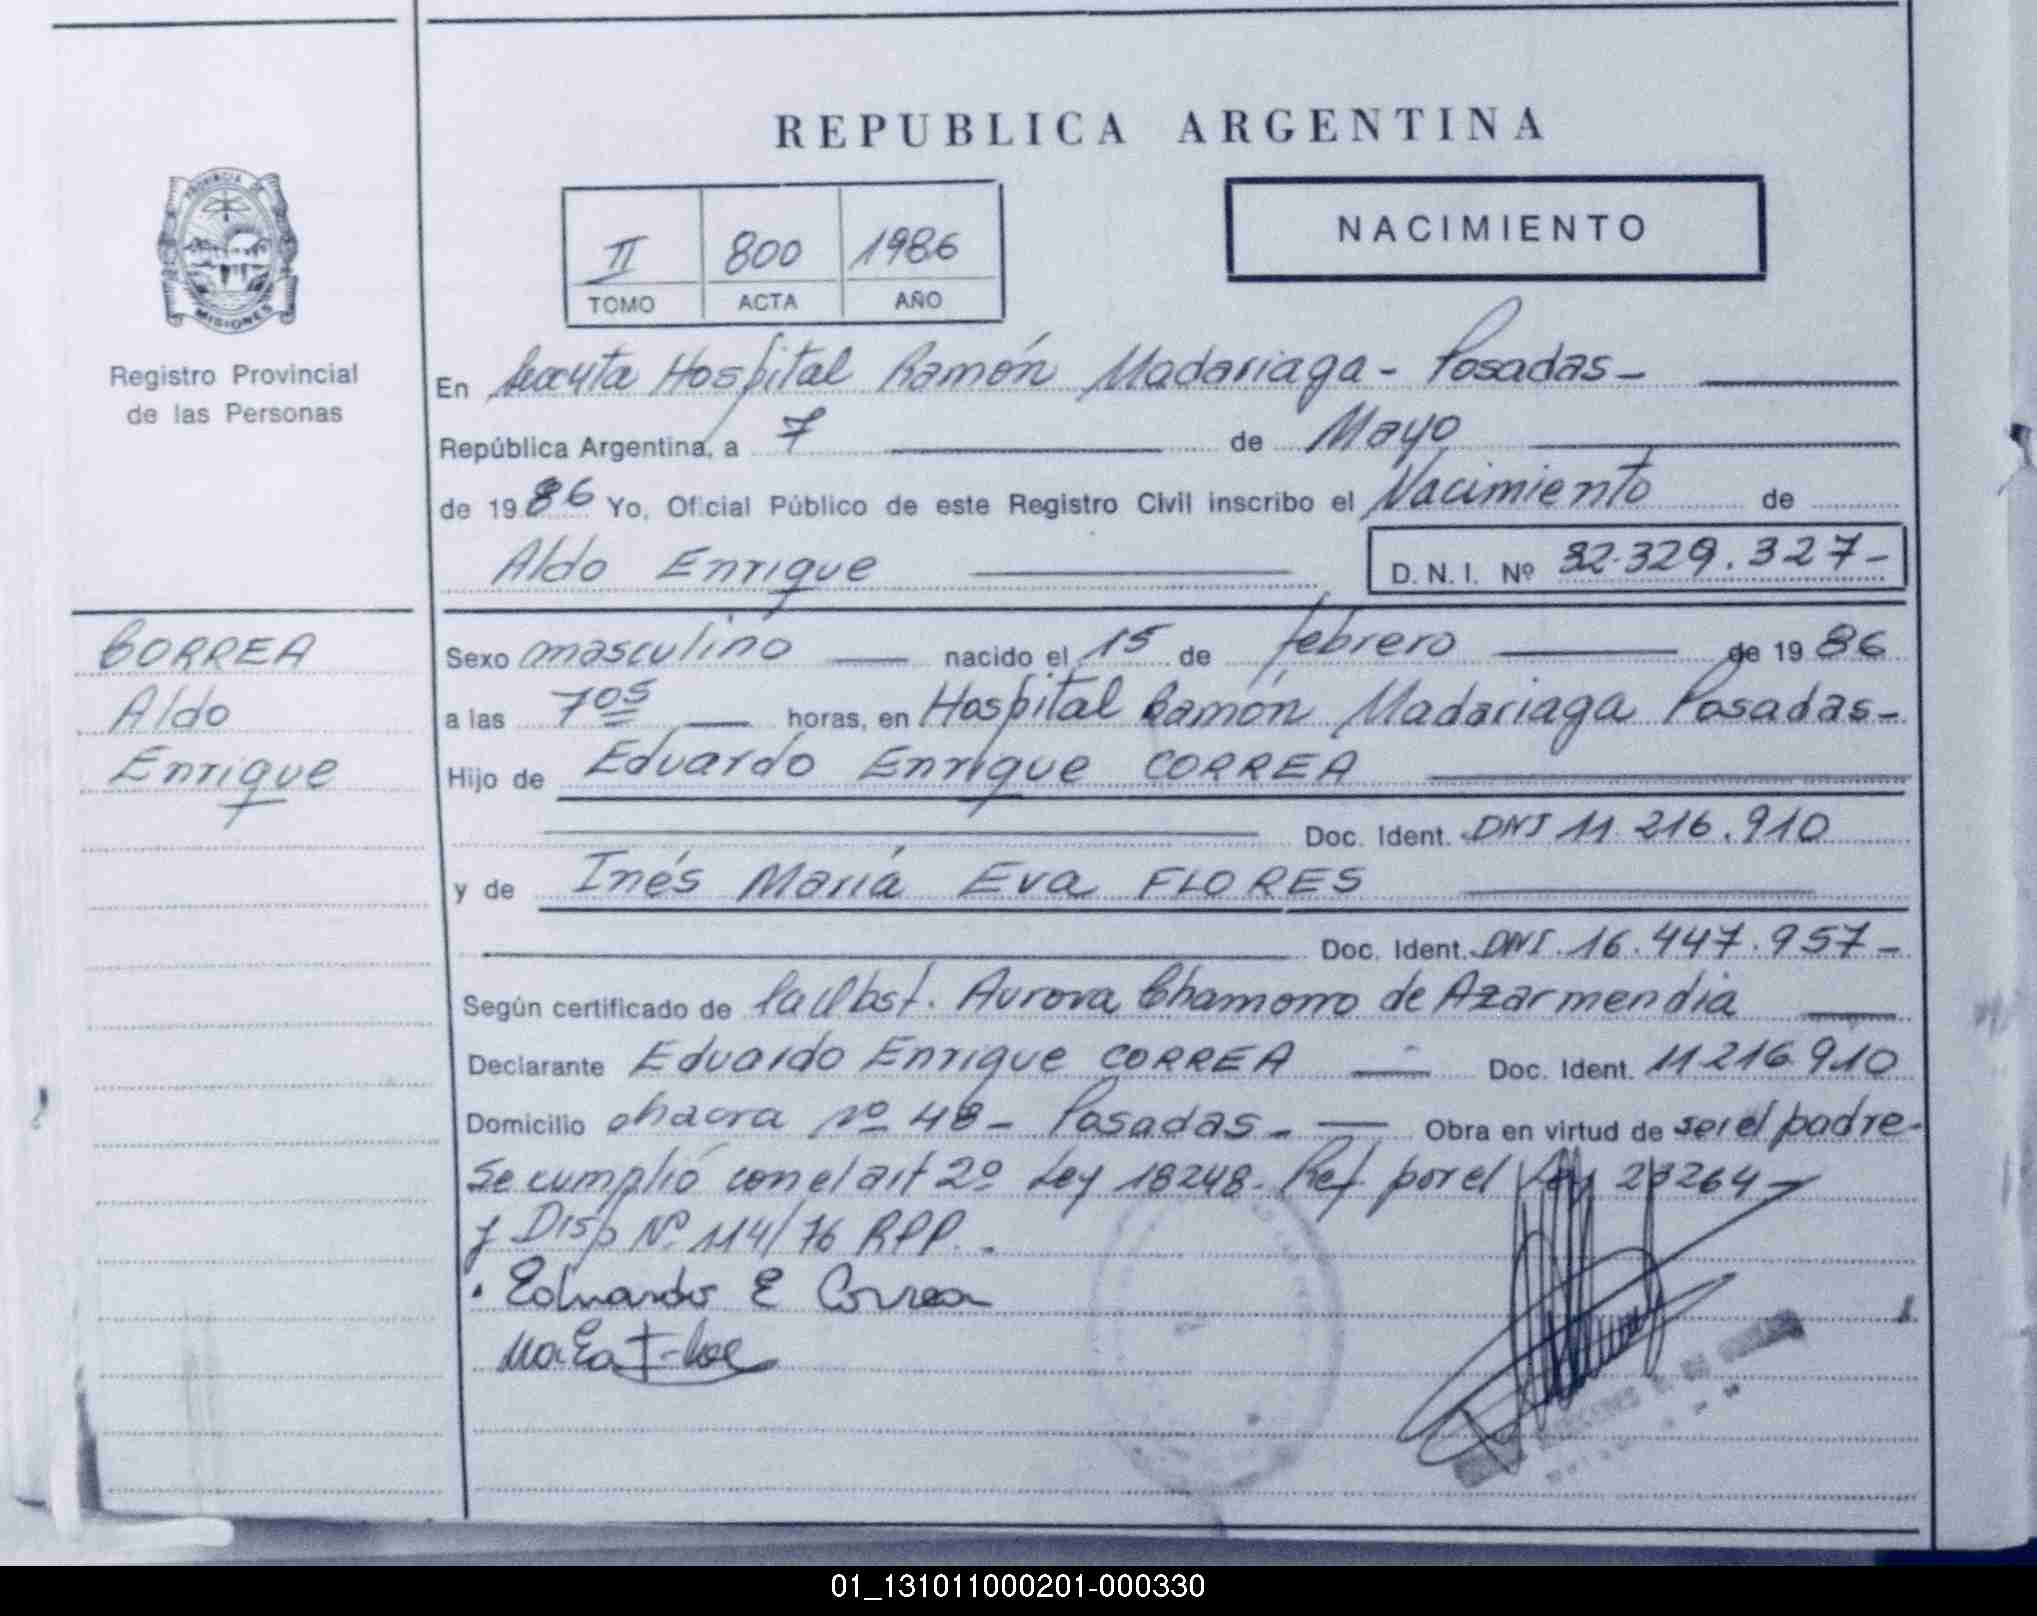 REPUBLICA ARGENTINA
PROVINCIA DE
MISIONES
Registro Provincial
de las Personas
NACIMIENTO
II 800 1986
TOMO ACTA AÑO
En Hospital Ramón Madariaga - Posadas -
República Argentina, a 7 de Mayo
de 1986 Yo, Oficial Público de este Registro Civil inscribo el Nacimiento de
Aldo Enrique D.N.I. Nº 32.329.327-
CORREA
Aldo
Enrique
Sexo masculino nacido el 15 de febrero de 1986
a las 7 05 horas, en Hospital Ramón Madariaga Posadas-
Hijo de Eduardo Enrique CORREA
Doc. Ident. DNI 11.216.910
y de Inés María Eva FLORES
Doc. Ident. DNI 16.447.957-
Según certificado de la Obst. Aurora Chamorro de Azarmendia
Declarante Eduardo Enrique CORREA Doc. Ident. 11216910
Domicilio chacra nº 48 - Posadas - Obra en virtud de ser el padre-
Se cumplió con el art 2º Ley 18248. Ref por el Ley 23264
y Disp Nº 114/76 RPP.
Eduardo E Correa
01_131011000201-000330